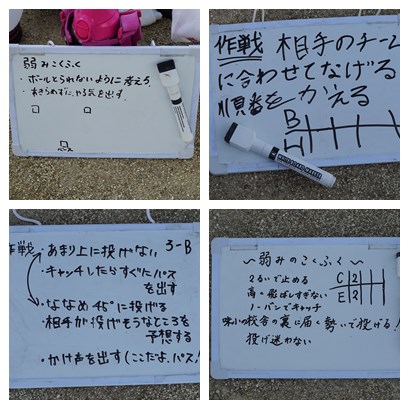 弱みこくふく
・ボールとられないように考えろ
・あきらめずに、やる気を出す。
パス
作戦 相手のチーム
に合わせてなげる
順番をかえる
B
H
WHITEBOARD MARKER
作戦・あまり上に投げない 3-B
・キャッチしたらすぐにパス
を出す
・ななめ45°に投げる
・相手が投げそうなところを
予想する
・かけ声を出す(ここだよ、パス!
〜弱みのこくふく〜
2るいで止める C 2
高く飛ばしすぎない E 2
1バンでキャッチ
校舎の裏に届く勢いで投げる!
投げ迷わない